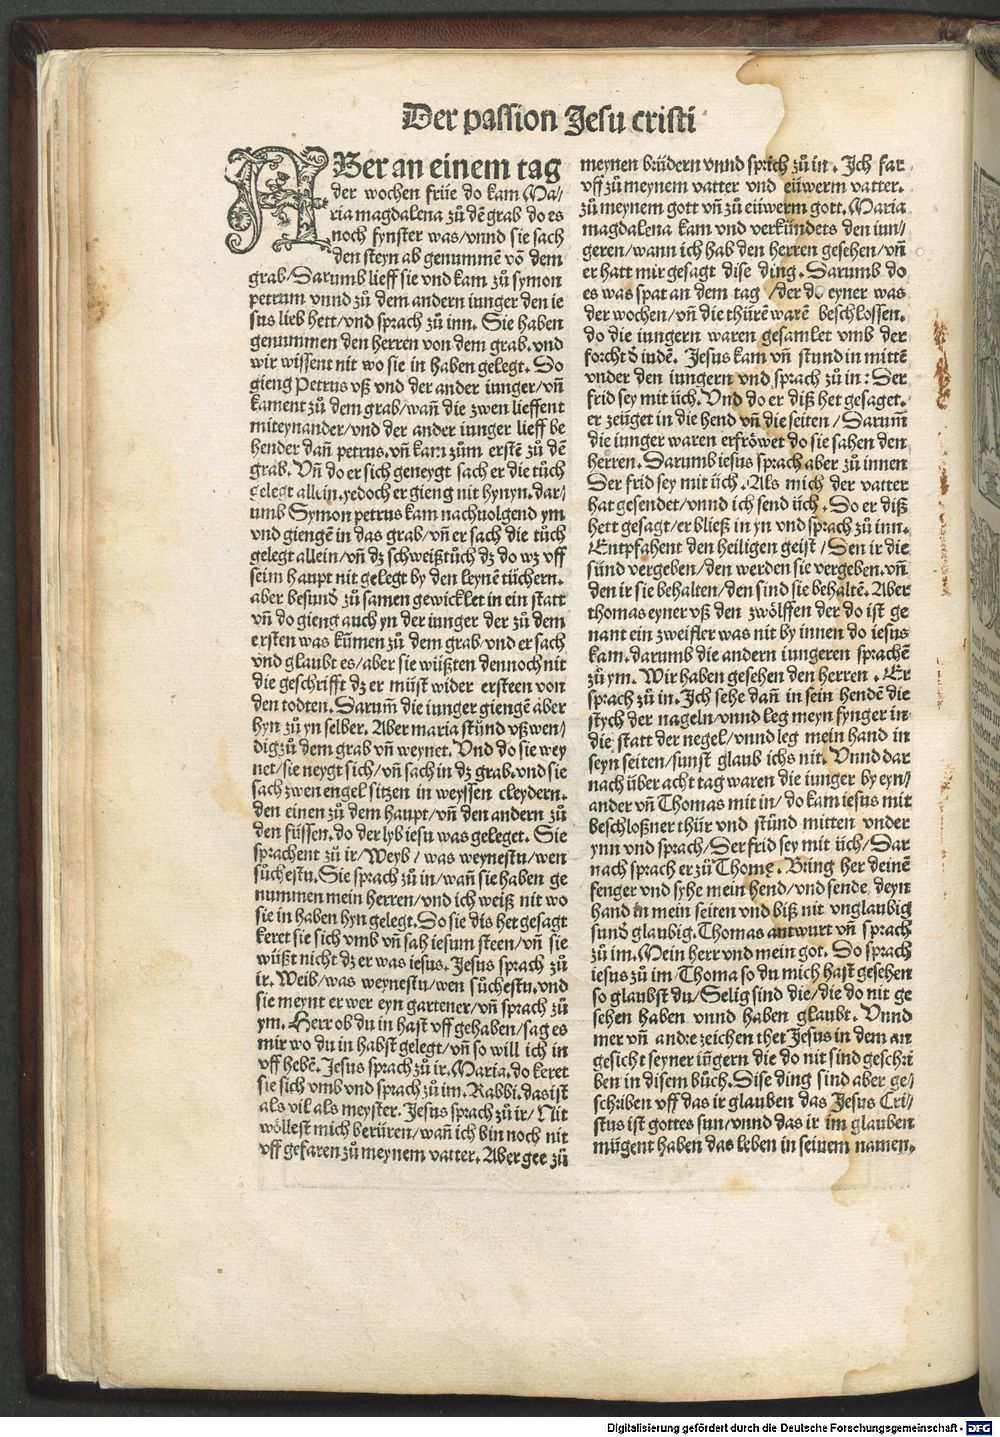 Der passion Jesu cristi
ABer an einem tag
der wochen früe do kam Ma/
ria magdalena zů dē grab do es
noch fynster was/vnnd sie sach
den steyn ab genummē vō dem
grab/Darumb lieff sie vnd kam zů symon
petrum vnnd zů dem andern iunger den ie
sus lieb hett/vnd sprach zů inn. Sie haben
genummen den herren von dem grab.vnd
wir wissent nit wo sie in haben gelegt. Do
gieng Petrus vß vnd der ander iunger/vñ
kament zů dem grab/wañ die zwen lieffent
miteynander/vnd der ander iunger lieff be
hender dañ petrus.vñ kam zům erstē zů dē
grab. Vñ do er sich geneygt sach er die tůch
gelegt allein.yedoch er gieng nit hynyn.dar/
umb Symon petrus kam nachuolgend ym
vnd giengē in das grab/vñ er sach die tůch
gelegt allein/vñ dz schweißtůch dz do wz vff
seim haupt nit gelegt by den leynē tüchern.
aber besund̄ zů samen gewicklet in ein statt
vñ do gieng auch yn der iunger der zů dem
ersten was kūmen zů dem grab/vnd er sach
vnd glaubt es/aber sie wüßten dennoch nit
die geschrifft dz er müst wider ersteen von
den todten. Darum̄ die iunger giengē aber
hyn zů yn selber. Aber maria stůnd vßwen/
dig zů dem grab vñ weynet. Vnd do sie wey
net/sie neygt sich/vñ sach in dz grab.vnd sie
sach zwen engel sitzen in weyssen cleydern.
den einen zů dem haupt/vñ den andern zů
den füssen.do der lyb iesu was geleget. Sie
sprachent zů ir/Weyb/was weynestu/wen
sůchestu.Sie sprach zů in/wañ sie haben ge
nummen mein herren/vnd ich weiß nit wo
sie in haben hyn gelegt.So sie dis het gesagt
keret sie sich vmb vñ sah iesum steen/vñ sie
wüßt nicht dz er was iesus. Jesus sprach zů
ir. Weib/was weynestu/wen sůchestu.vnd
sie meynt er wer eyn gartener/vñ sprach zů
ym. Herr ob du in hast vff gehaben/sag es
mir wo du in habst gelegt/vñ so will ich in
vff hebē. Jesus sprach zů ir.Maria.do keret
sie sich vmb vnd sprach zů im.Rabbi.das ist
als vil als meyster. Jesus sprach zů ir/Nit
wöllest mich berüren/wañ ich bin noch nit
vff gefaren zů meynem vatter. Aber gee zů
meynen brüdern vnnd sprich zů in. Ich far
vff zů meynem vatter vnd eüwerm vatter.
zů meynem gott vñ zů eüwerm gott.Maria
magdalena kam vnd verkündets den iun/
geren/wann ich hab den herren gesehen/vñ
er hatt mir gesagt dise ding. Darumb do
es was spat an dem tag/der do eyner was
der wochen/vñ die thürē warē beschlossen.
do die iungern waren gesamlet vmb der
forcht d̄ iudē. Jesus kam vñ stund in mittē
vnder den iungern vnd sprach zů in: Der
frid sey mit üch. Vnd do er diß het gesaget.
er zeüget in die hend vñ die seiten/Darum̄
die iunger waren erfröwet do sie sahen den
herren. Darumb iesus sprach aber zů innen
Der frid sey mit üch. Als mich der vatter
hat gesendet/vnnd ich send üch. Do er diß
hett gesagt/er bließ in yn vnd sprach zů inn.
Entpfahent den heiligen geist/Den ir die
sünd vergeben/den werden sie vergeben.vñ
den ir sie behalten/den sind sie behaltē. Aber
thomas eyner vß den zwölffen der do ist ge
nant ein zweifler was nit by innen do iesus
kam.darumb die andern iungeren sprachē
zů ym. Wir haben gesehen den herren. Er
sprach zů in.Ich sehe dañ in sein hendē die
stych der nageln/vnnd leg meyn fynger in
die statt der negel/vnnd leg mein hand in
seyn seiten/sunst glaub ichs nit. Vnnd dar
nach über acht tag waren die iunger by eyn/
ander vñ Thomas mit in/do kam iesus mit
beschloßner thür vnd stůnd mitten vnder
ynn vnd sprach/Der frid sey mit üch/Dar
nach sprach er zů Thome. Bring her deinē
fenger vnd syhe mein hend/vnd sende deyn
hand in mein seiten vnd biß nit vnglaubig
sund̄ glaubig. Thomas antwurt vñ sprach
zů im. Mein herr vnd mein got. Do sprach
iesus zů im/Thoma so du mich hast gesehen
so glaubst du/Selig sind die/die do nit ge
sehen haben vnnd haben glaubt. Vnnd
mer vñ andre zeichen thet Jesus in dem an
gesicht seyner iūgern die do nit sind geschri
ben in disem bůch.Dise ding sind aber ge/
schriben vff das ir glauben das Jesus Cri/
stus ist gottes sun/vnnd das ir im glauben
mügent haben das leben in seinem namen.
Digitalisierung gefördert durch die Deutsche Forschungsgemeinschaft - DFG